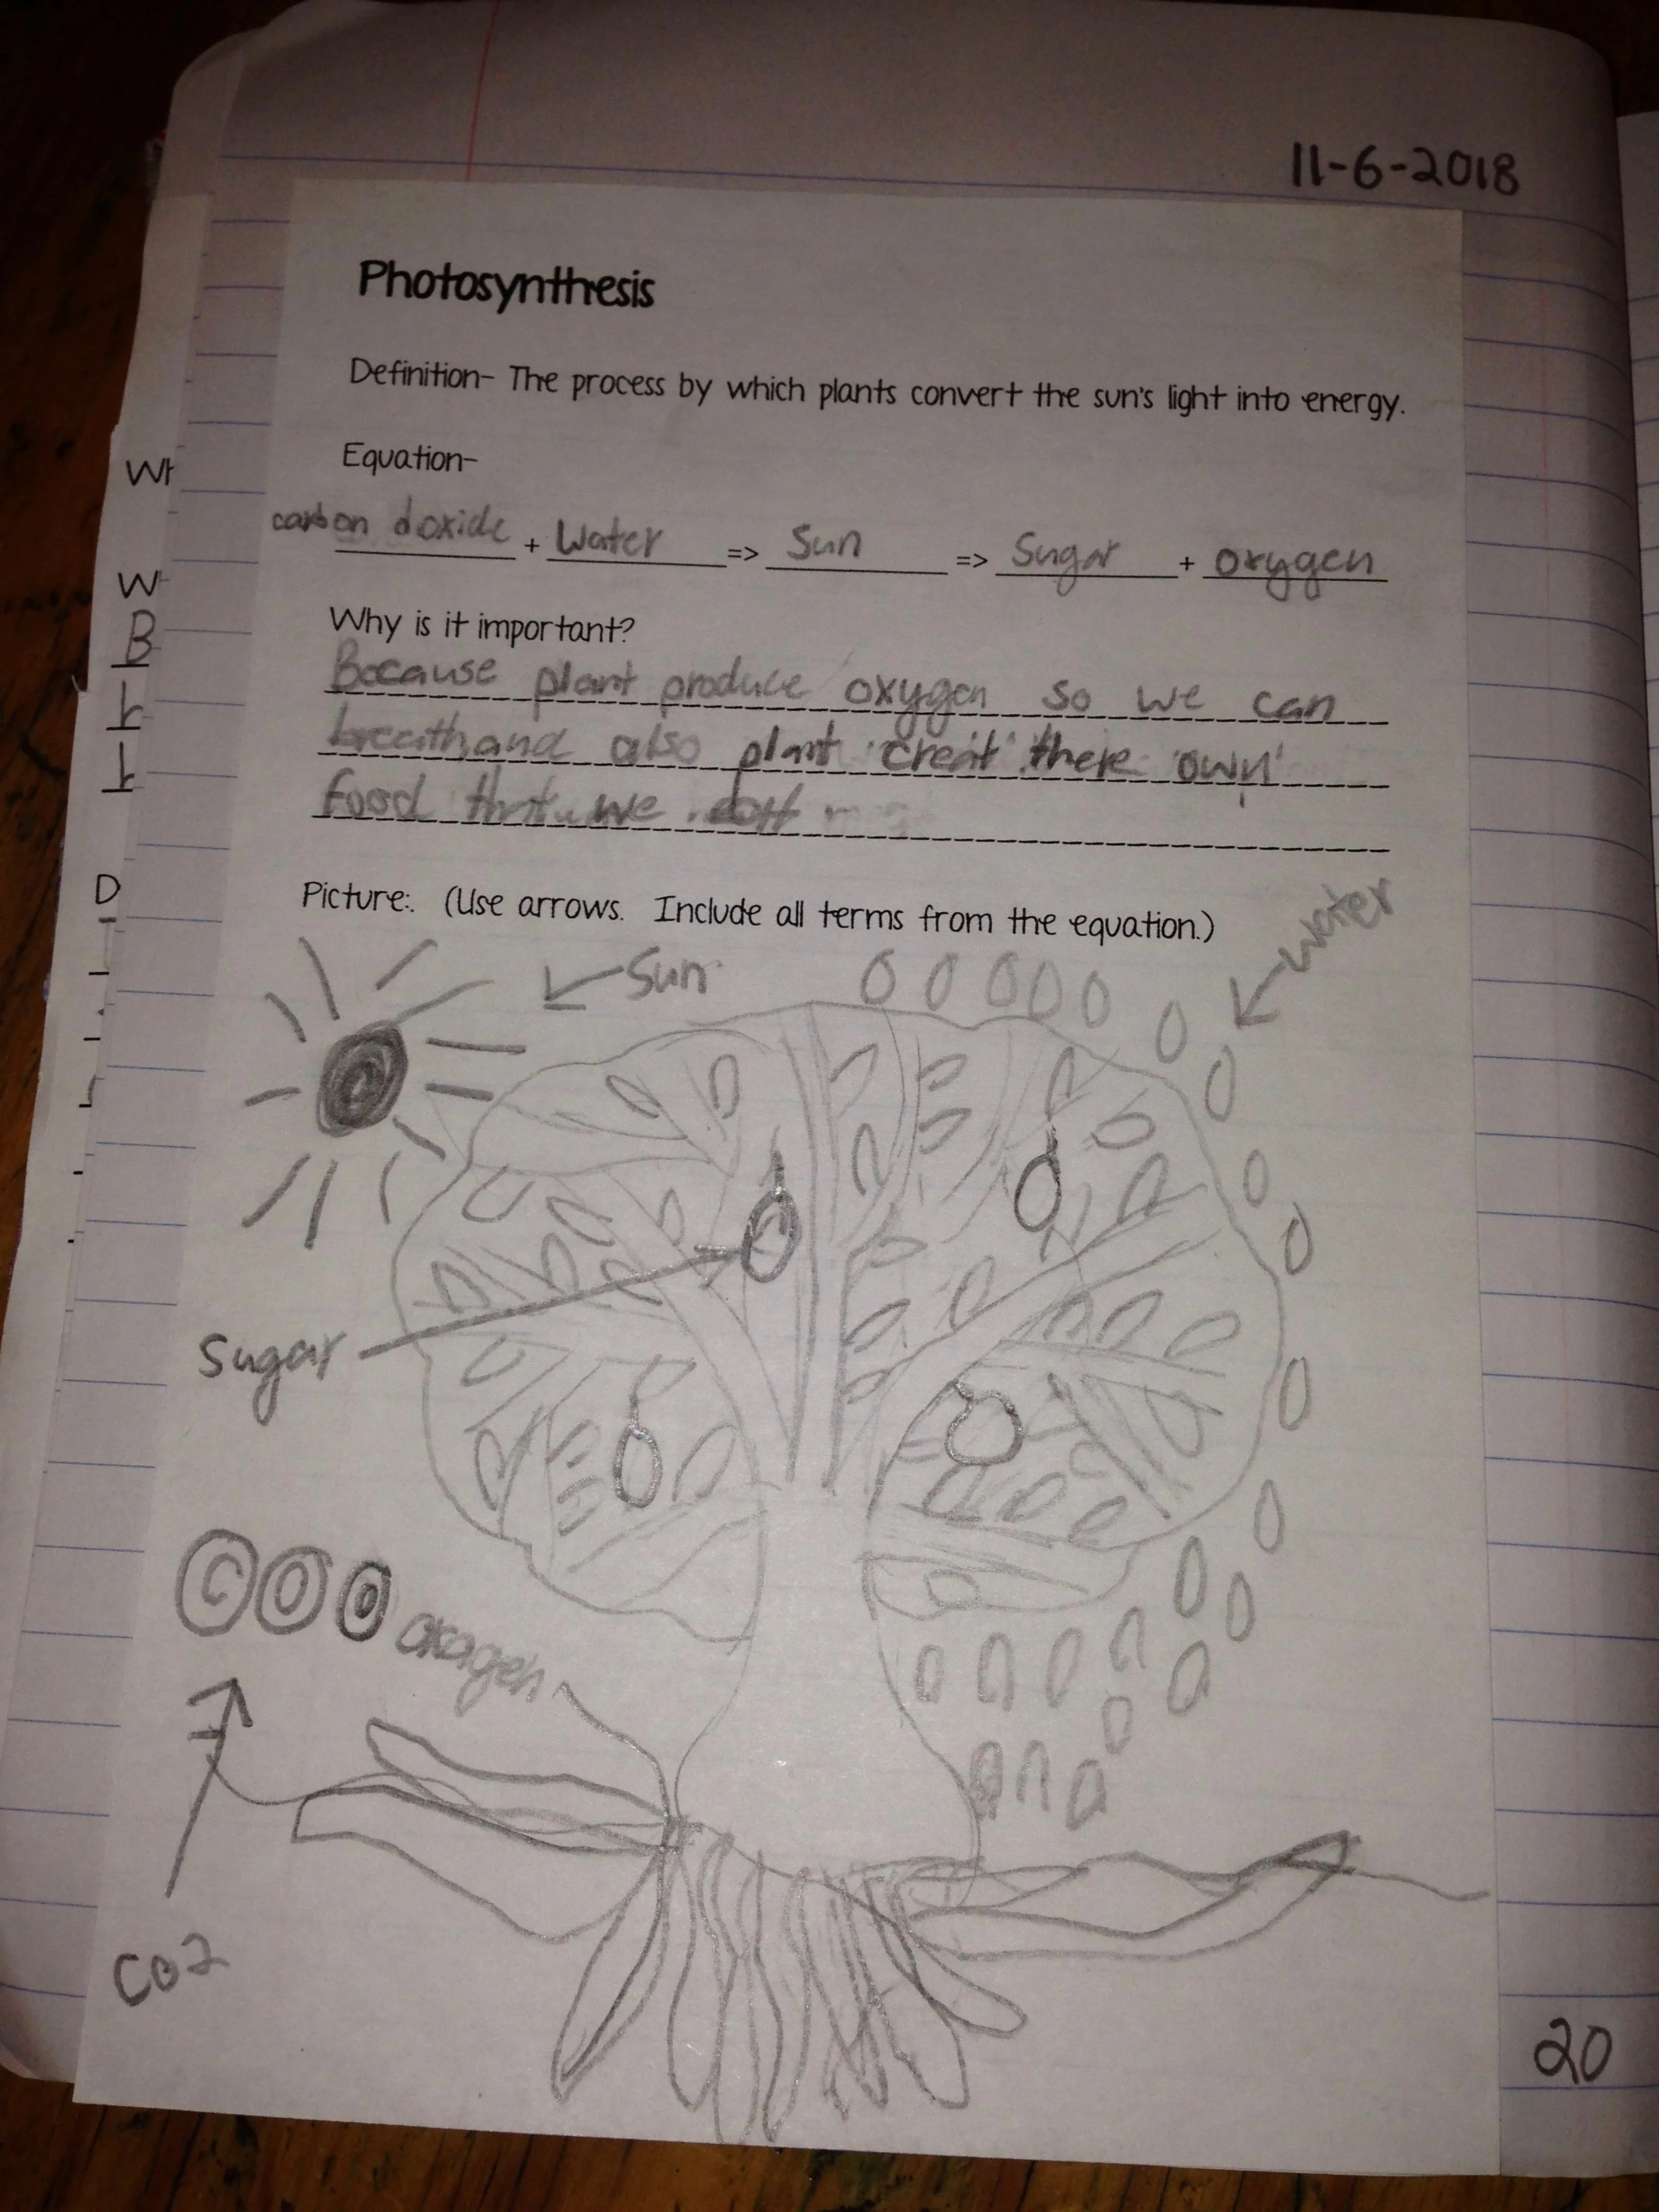 11-6-2018
Photosynthesis
Definition- The process by which plants convert the sun's light into energy.
Equation-
carbon doxide + Water => Sun => Sugar + oxygen
Why is it important?
Because plant produce oxygen so we can
breath,and also plant creat there own
food that we eat
Picture: (Use arrows. Include all terms from the equation.)
Sun
Water
Sugar
C O O
oxagen
CO2
20
Wh
W
B
D